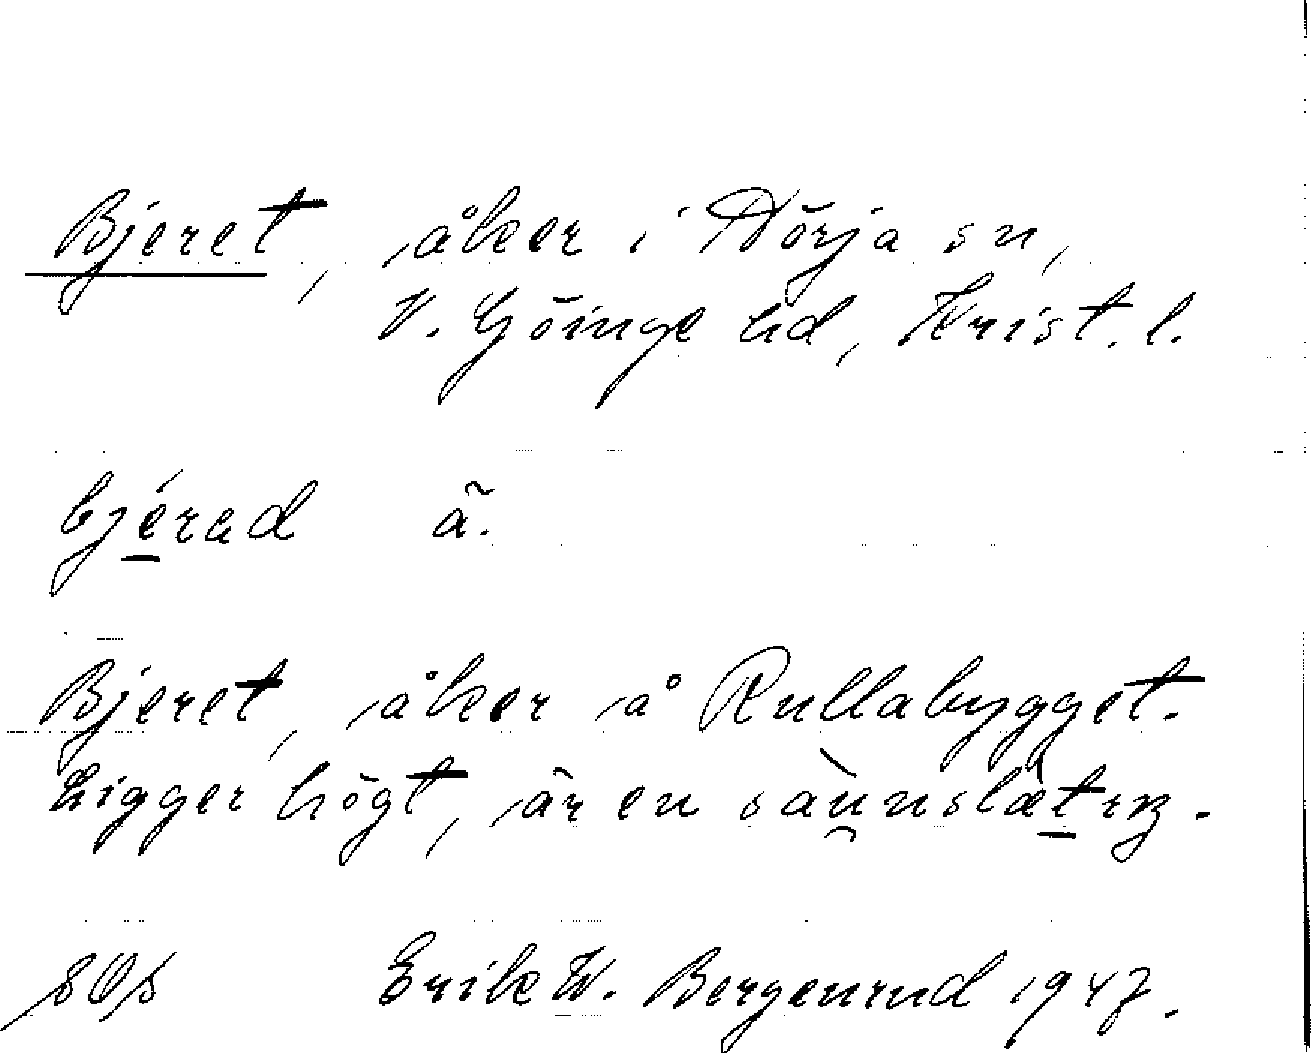 Bjeret, åker i Nörja sn,
V. Göinge hd, Krist. l.
bjérad ã.
Bjeret, åker å Rullabygget.
Ligger högt, är en
Erik W. Bergenrud 1947.